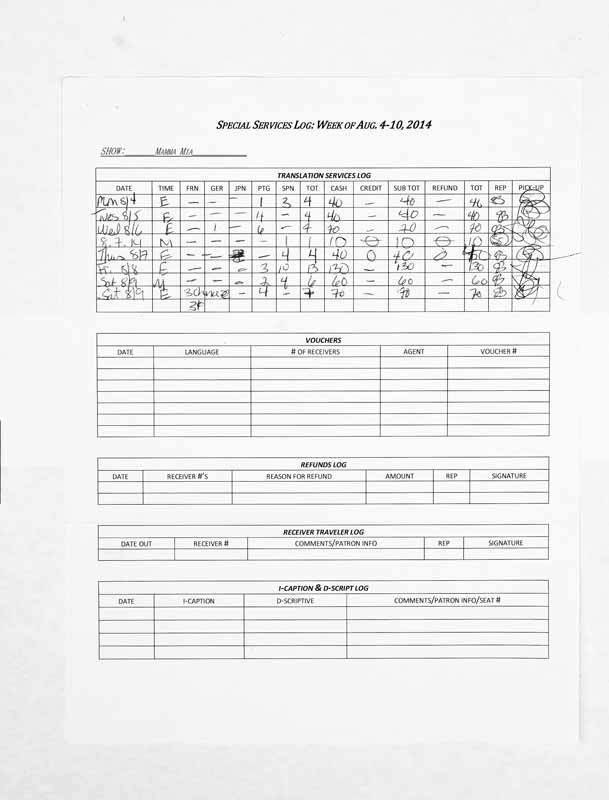 SPECIAL SERVICES LOG: WEEK OF AUG. 4-10, 2014
SHOW: MAMMA MIA
TRANSLATION SERVICES LOG
DATE TIME FRN GER JPN PTG SPN TOT CASH CREDIT SUB TOT REFUND TOT REP PICK-UP
Mon 8/4 E — — 1 3 4 40 — 40 — 40
8/5 E — — 4 — 4 40 — 40 — 40
Wed 8/6 E — 1 — 6 — 7 70 — 70 — 70
8.7.14 M — — — — 1 1 10 10 10
Thus 8/7 E — — — 4 4 40 0 40 0
Fri 8/8 E — — 3 10 13 130 — 130 — 130
Sat 8/9 M — — 2 4 6 60 — 60 — 60
Sat 8/9 E 3 — 4 — 7 70 — 70 — 70
VOUCHERS
DATE LANGUAGE # OF RECEIVERS AGENT VOUCHER #
REFUNDS LOG
DATE RECEIVER #'S REASON FOR REFUND AMOUNT REP SIGNATURE
RECEIVER TRAVELER LOG
DATE OUT RECEIVER # COMMENTS/PATRON INFO REP SIGNATURE
I-CAPTION & D-SCRIPT LOG
DATE I-CAPTION D-SCRIPTIVE COMMENTS/PATRON INFO/SEAT #